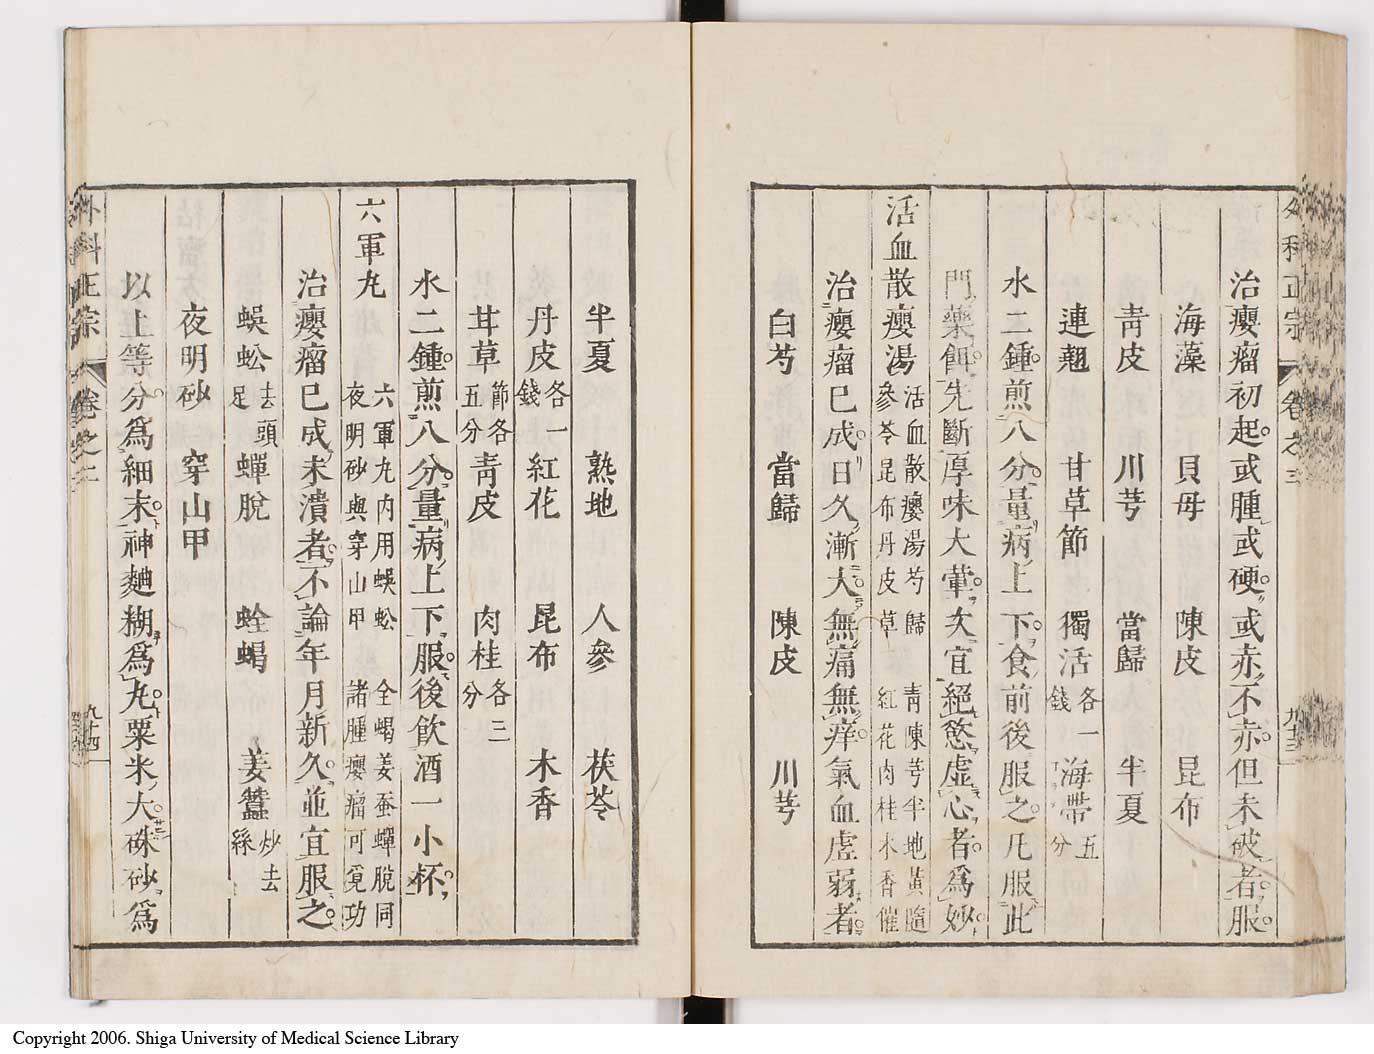 外科正宗 卷之三 九十三
治癭瘤初起或腫或硬或赤不赤但未破者服
海藻 貝母 陳皮 昆布
青皮 川芎 當歸 半夏
連翹 甘草節 獨活各一錢 海帶五分
水二鍾煎八分量病上下食前後服之凡服此
門藥餌先斷厚味大葷次宜絕慾虛心者爲妙
活血散癭湯 活血散癭湯芍歸 青陳芎半地黃隨
參苓昆布丹皮草 紅花肉桂木香催
治癭瘤已成日久漸大無痛無痒氣血虛弱者
白芍 當歸 陳皮 川芎
半夏 熟地 人參 茯苓
丹皮各一錢 紅花 昆布 木香
甘草節各五分 青皮 肉桂各三分
水二鍾煎八分量病上下服後飲酒一小杯
六軍丸 六軍丸內用蜈蚣 全蝎姜蚕蟬脫同
夜明砂與穿山甲 諸腫癭瘤可覓功
治癭瘤已成未潰者不論年月新久並宜服之
蜈蚣去頭足 蟬脫 全蝎 姜蠶炒去絲
夜明砂 穿山甲
以上等分爲細末神麯糊爲丸粟米大硃砂爲
外科正宗 卷之三 九十四
Copyright 2006. Shiga University of Medical Science Library